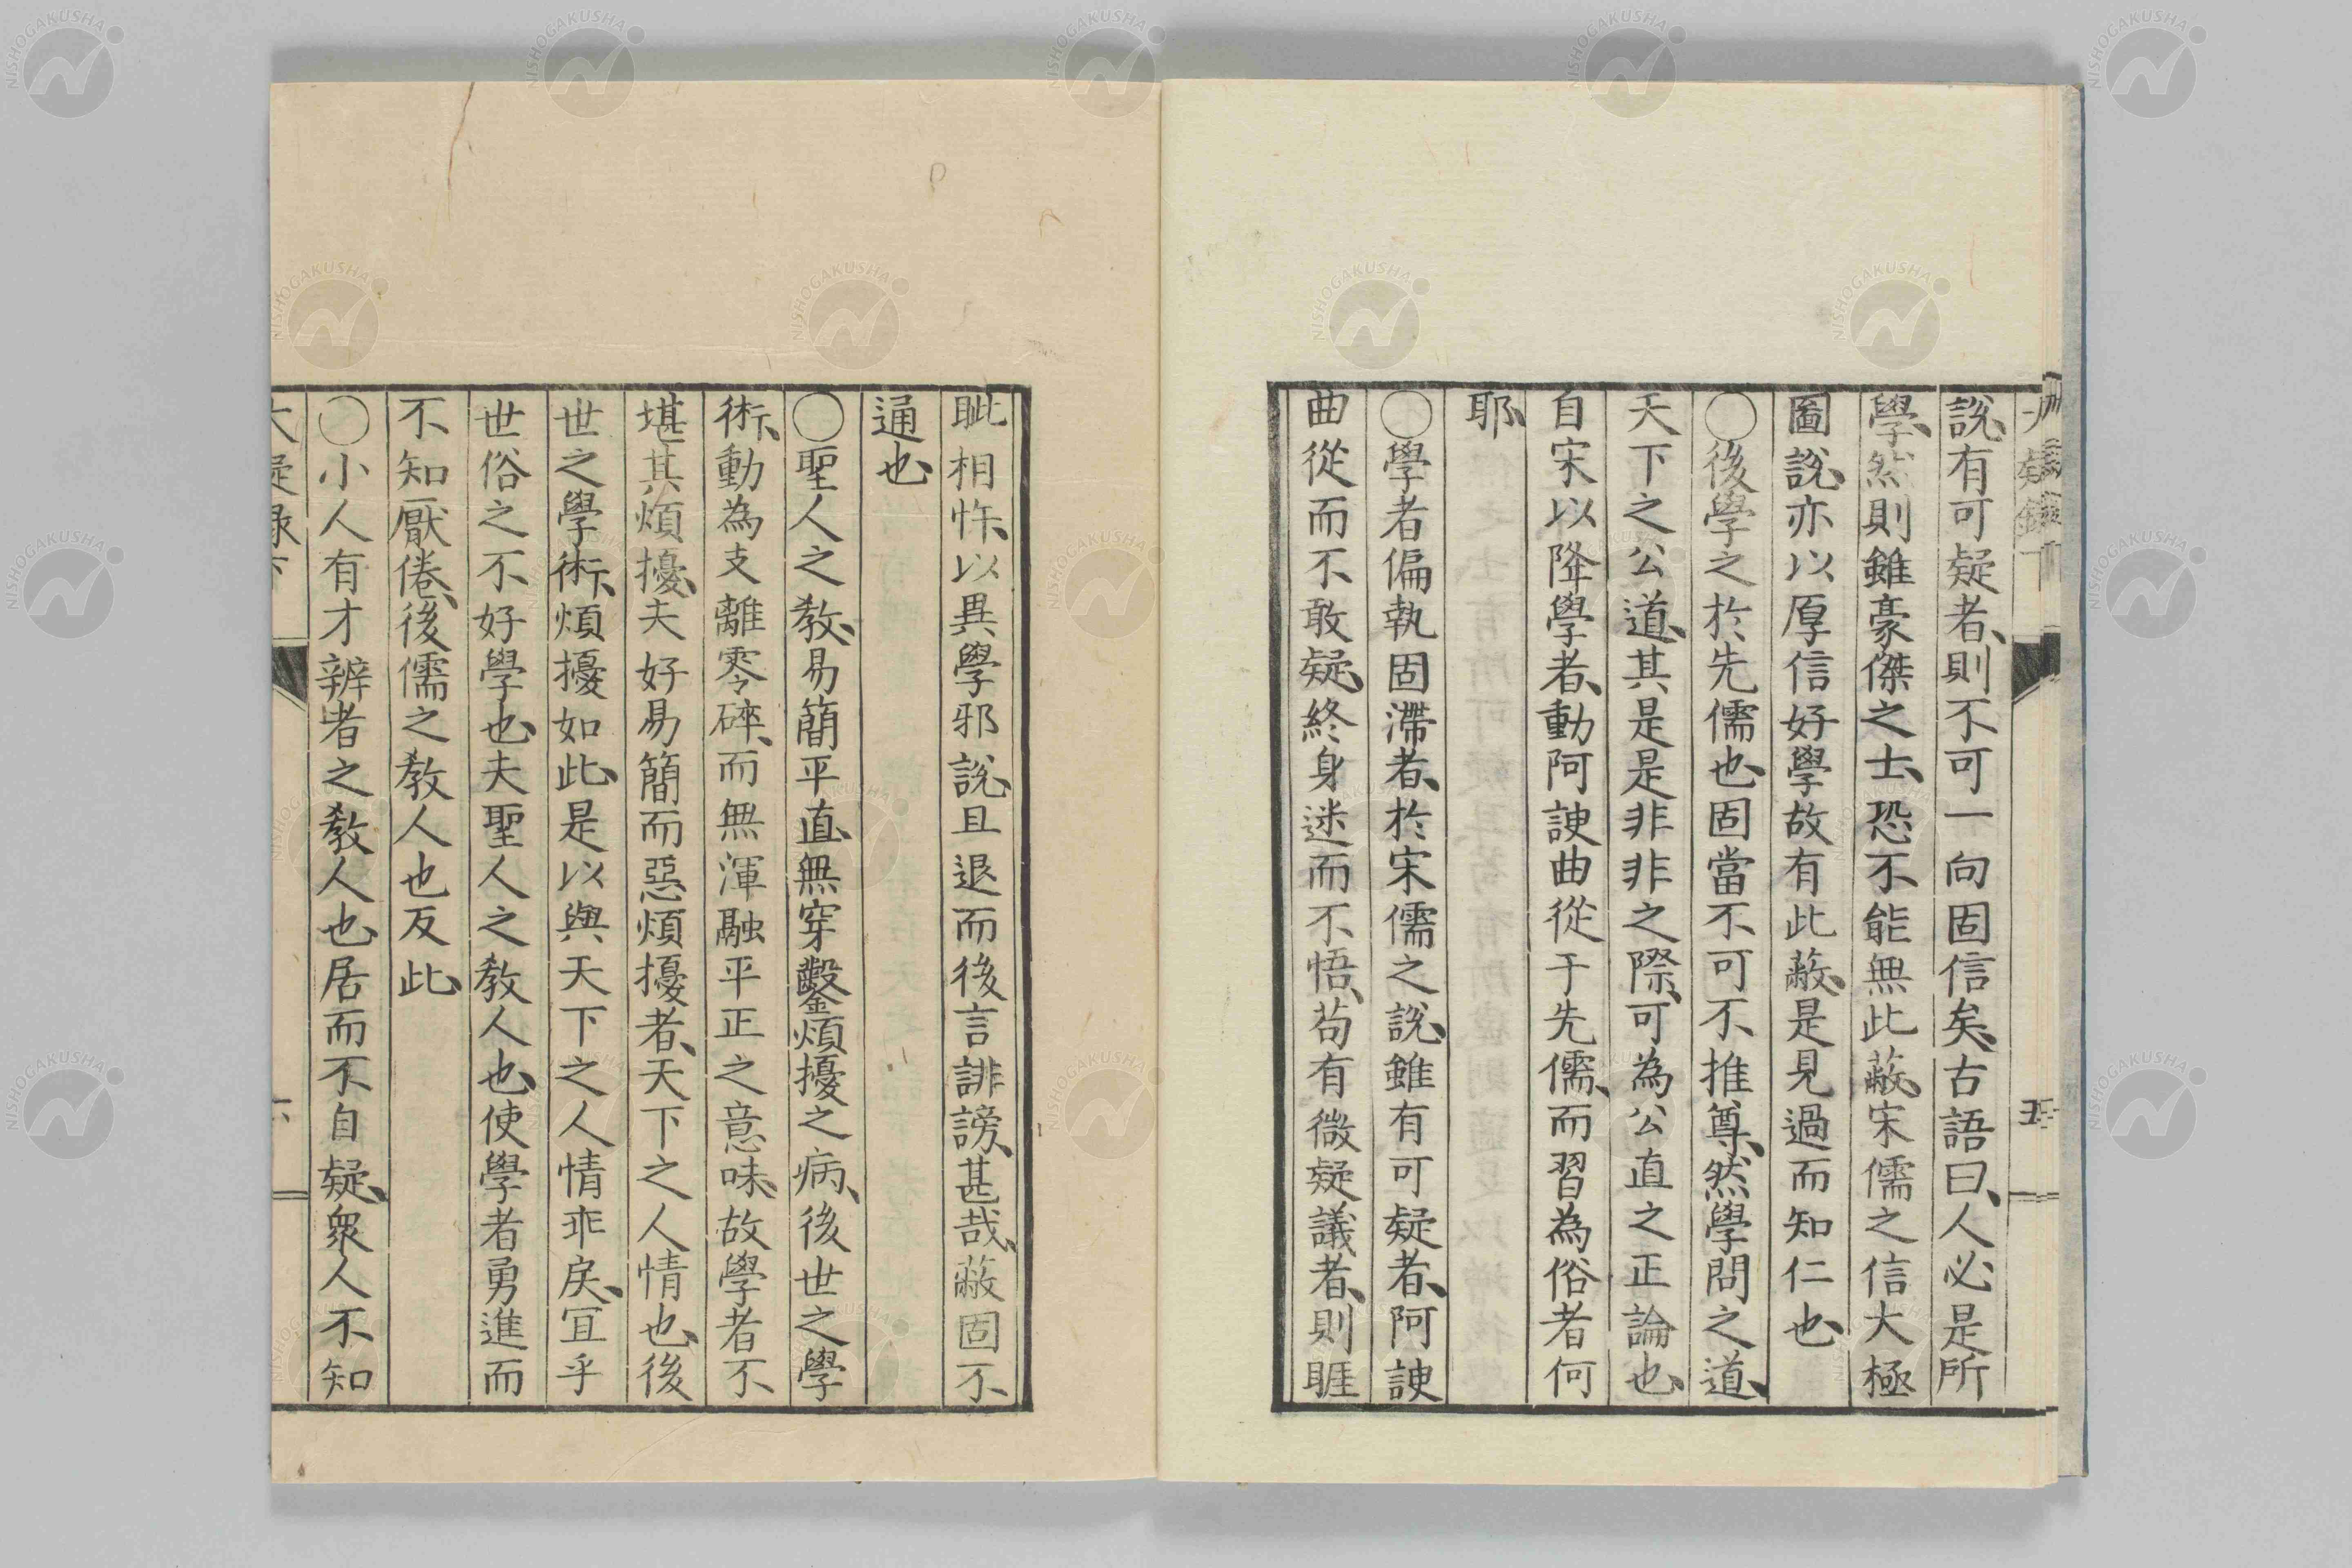 大疑録下　五
說、有可疑者、則不可一向固信矣、古語曰、人必是所
學、然則雖豪傑之士、恐不能無此蔽、宋儒之信大極
圖說、亦以厚信好學故有此蔽、是見過而知仁也
〇後學之於先儒也、固當不可不推尊、然學問之道、
天下之公道、其是是非非之際、可為公直之正論也、
自宋以降學者、動阿諛曲從于先儒、而習為俗者何
耶、
〇學者偏執固滯者、於宋儒之說、雖有可疑者、阿諛
曲從而不敢疑、終身迷而不悟、苟有微疑議者、則睚
眦相忤、以異學邪說、且退而後言誹謗、甚哉、蔽固不
通也
〇聖人之教、易簡平直、無穿鑿煩擾之病、後世之學
術、動為支離零碎、而無渾融平正之意味、故學者不
堪其煩擾、夫好易簡而惡煩擾者、天下之人情也、後
世之學術、煩擾如此、是以與天下之人情乖戾、宜乎
世俗之不好學也、夫聖人之教人也、使學者勇進而
不知厭倦、後儒之教人也反此、
〇小人有才辨者之教人也、居而不自疑、衆人不知
大疑録下